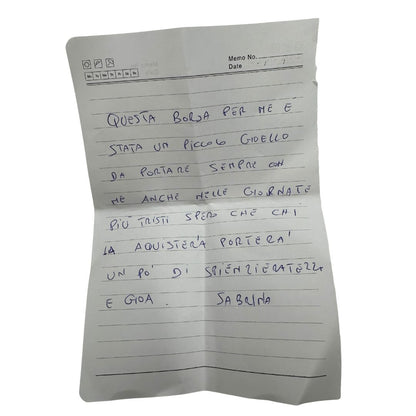 Memo No.
Date / /
Mo Tu We Th Fr Sa Su
QUESTA BORSA PER ME E'
STATA UN PICCOLO GIOIELLO
DA PORTARE SEMPRE CON
ME ANCHE NELLE GIORNATE
PIÙ TRISTI SPERO CHE CHI
LA AQUISTERÀ PORTERA'
UN PO' DI SPIENZIERATEZZA
E GIOA. SABRINA